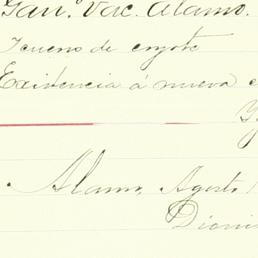 Gan.º Vac. Alamo.
Terreno de coyote
Existencia á nueva c
Alamo, Agosto 1
Dioni